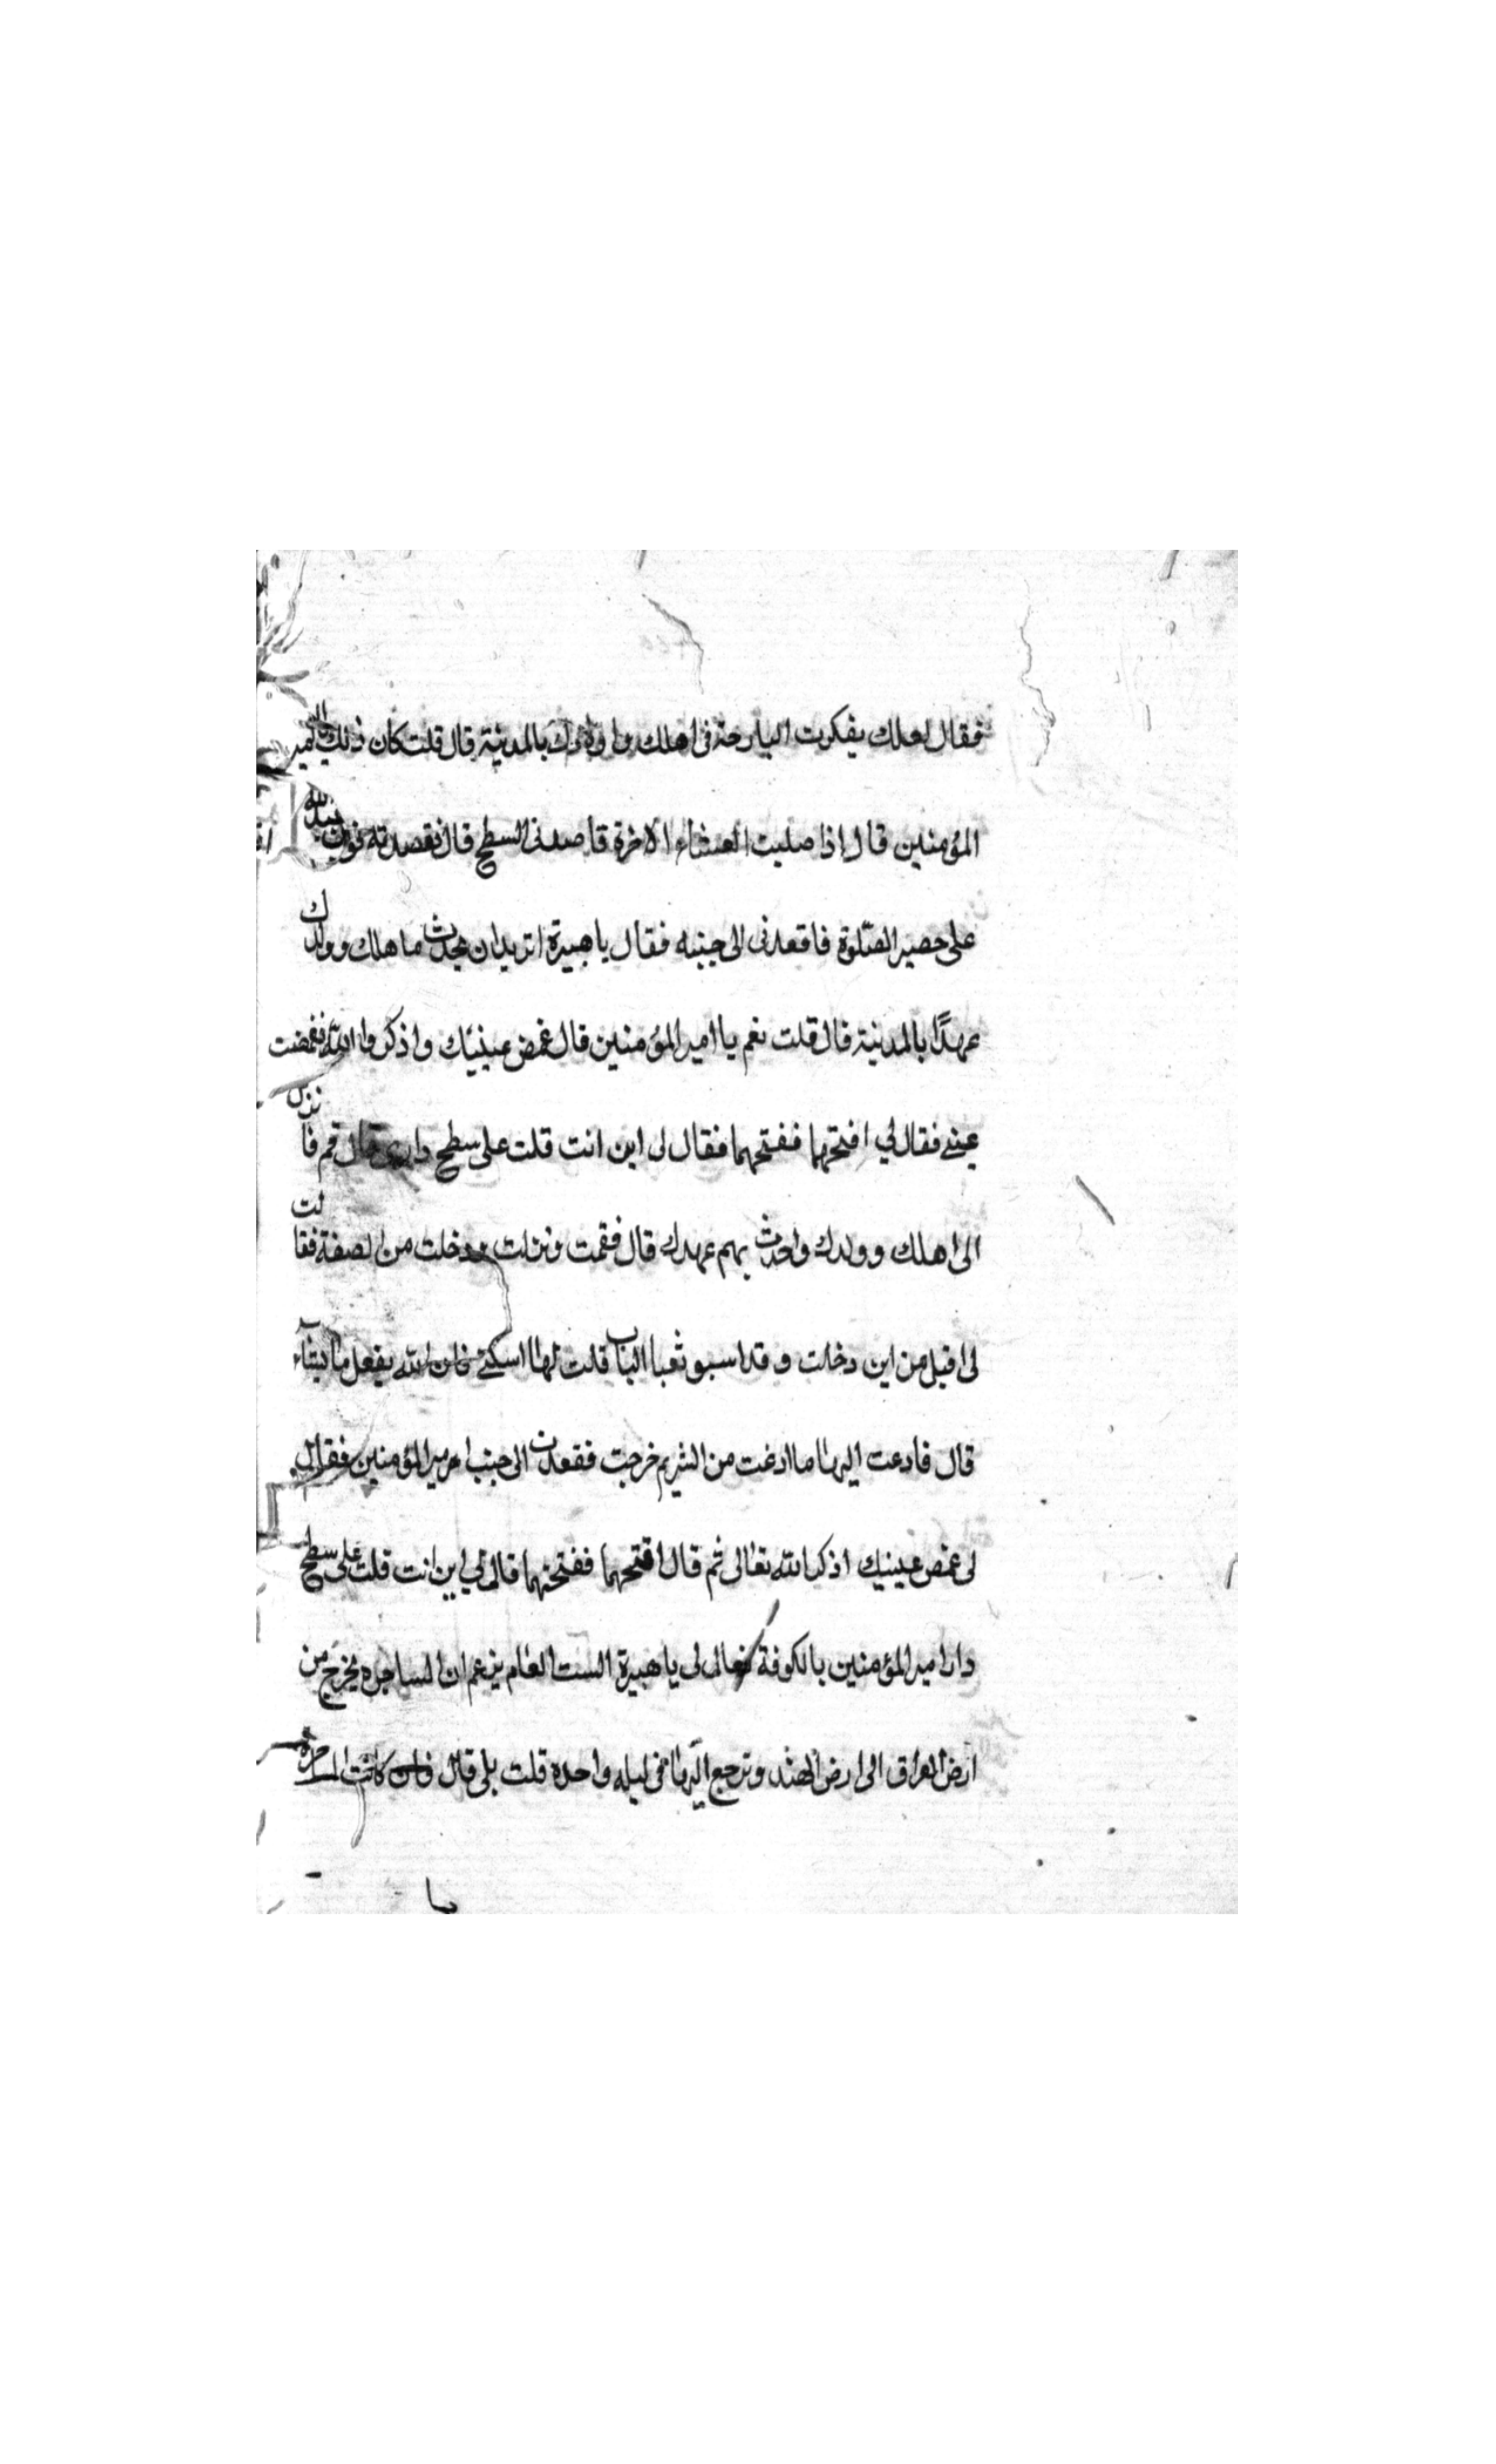 فقال لعلك يفكرت البارحة فى اهلك واولادك بالمدينة قال قلت كان ذلك يا امير
المؤمنين قال اذا صليت العشاء الاخرة قاصدنى السطح قال فقصدته فوق
على حصير الصلوة فاقعدنى الى جنبه فقال يا هبيرة اتريد ان تحدث ماهلك وولدك
عهدًا بالمدينة قال قلت نعم يا امير المؤمنين قال غمض عينيك واذكر والله فغمضت
عينى فقال لي افتحهما ففتحهما فقال لى اين انت قلت على سطح دارى قال قم فانزل
الى اهلك وولدك واحدث بهم عهدك قال فقمت ونزلت ودخلت من الصفة فقالت
لى اقبل من اين دخلت وقد الباب قلت لها اسكتى فان الله يفعل ما يشاء
قال فادعت اليها ما ادعت من خرجت فقعدت الى جنب امير المؤمنين فقال
لى غمض عينيك اذكر الله تعالى ثم قال افتحهما ففتحتهما قال لي اين انت قلت على سطح
دار امير المؤمنين بالكوفة فقال لى يا هبيرة الست العام يزعم ان الساحره يخرج من
ارض العراق الى ارض الهند وترجع اليها فى ليله واحده قلت بلى قال فان كانت الساحرة